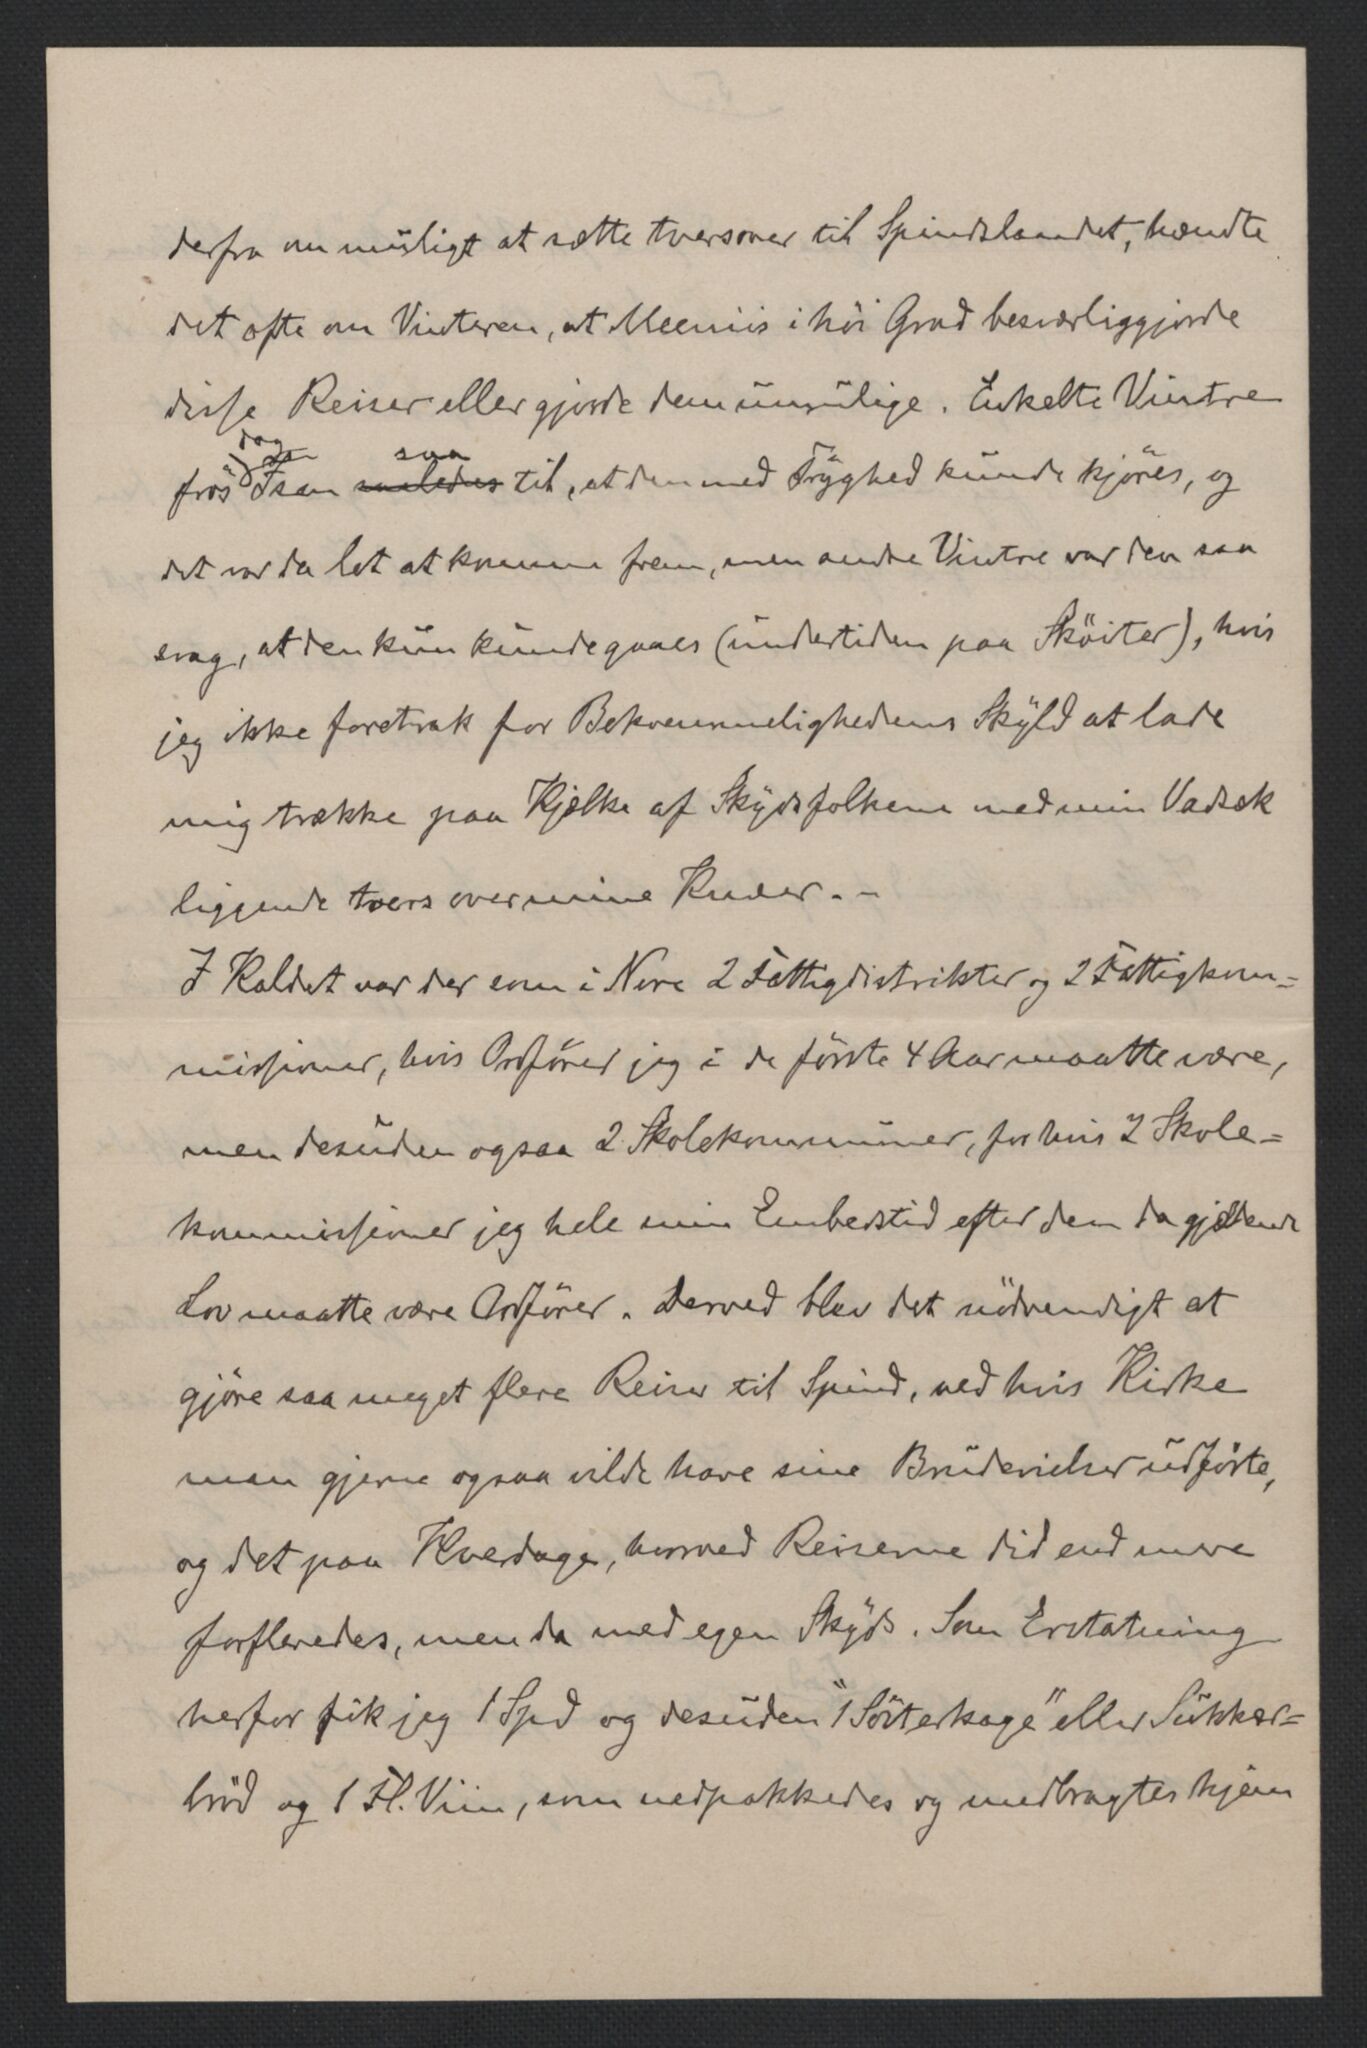 derfra om muligt at sætte tversover til Spindslandet, hændte
det ofte om Vinteren, at Meeniis i höi Grad besværliggjorde
disse Reiser eller gjorde dem umulige. Enkelte Vintre
frös dog Isen saaledes saa til, at den med Tryghed kunde kjöres, og
det var da let at komme frem, men andre Vintre var den saa
svag, at den kun kunde gaaes (undertiden paa Sköiter), hvis
jeg ikke foretrak for Bekvemmelighedens Skyld at lade
mig trække paa Kjelke af Skydsfolkene med min Vadsæk
liggende tvers over mine Knæer. -
I Kaldet var der som i Nore 2 Fattigdistrikter og 2 Fattigkom=
missioner, hvis Ordförer jeg i de förste 4 Aar maatte være,
men desuden ogsaa 2 Skolekommuner, for hvis 2 Skole=
kommissioner jeg hele min Embedstid efter den da gjældende
Lov maatte være Ordförer. Derved blev det nödvendigt at
gjöre saa meget flere Reiser til Spind, ved hvis Kirke
man gjerne ogsaa vilde have sine Brudevielser udförte,
og det paa Hverdage, hvorved Reiserne did end mere
forfleredes, men da med egen Skyds. Som Erstatning
herfor fik jeg 1 Spd og desuden "1 Sörterkage" eller Sukker=
bröd og 1 Fl. Viin, som nedpakkedes og medbragtes hjem